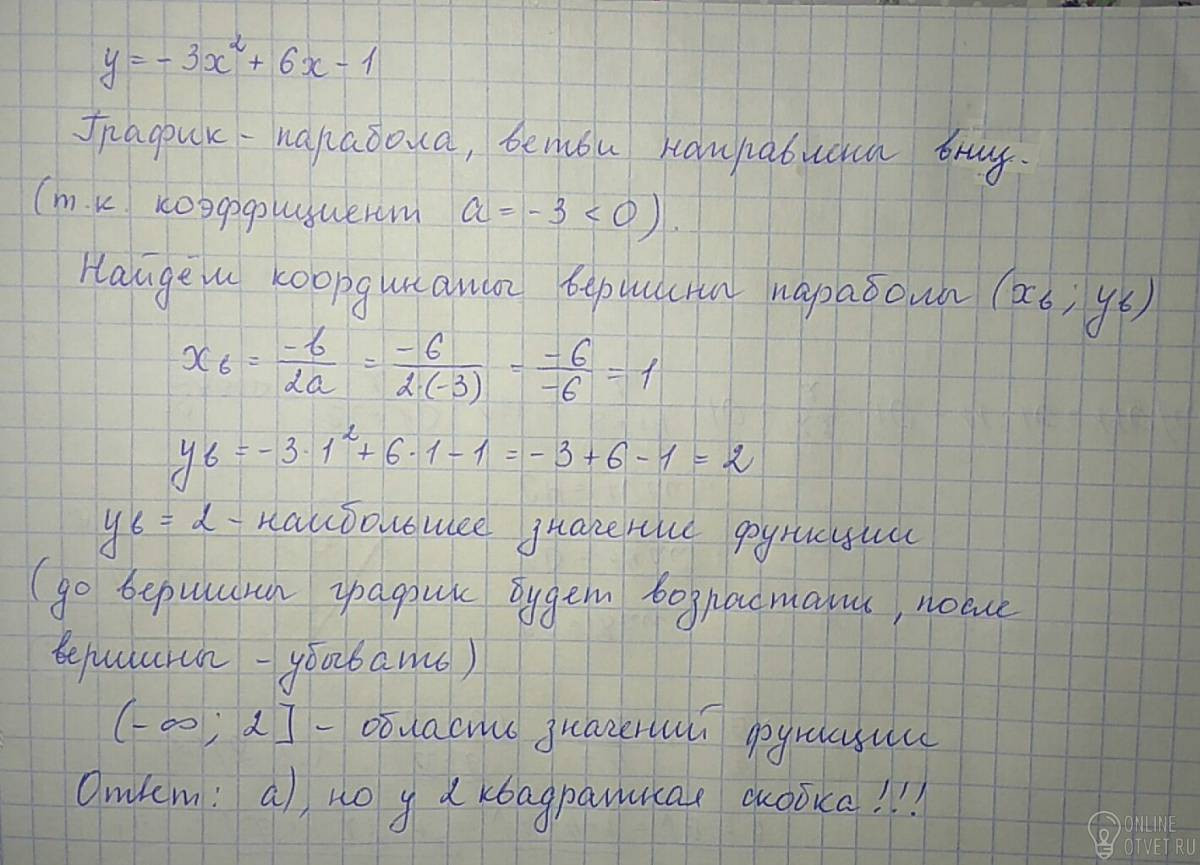 y = -3x² + 6x - 1
График - парабола, ветви направлены вниз.
(т.к. коэффициент a = -3 < 0).
Найдём координаты вершины параболы (xв; yв)
xв = -b/2a = -6/2·(-3) = -6/-6 = 1
yв = -3·1² + 6·1 - 1 = -3 + 6 - 1 = 2
yв = 2 - наибольшее значение функции
(до вершины график будет возрастать, после
вершины - убывать)
(-∞; 2] - область значений функции
Ответ: а), но у 2 квадратная скобка!!!
ONLINE
OTVET.RU